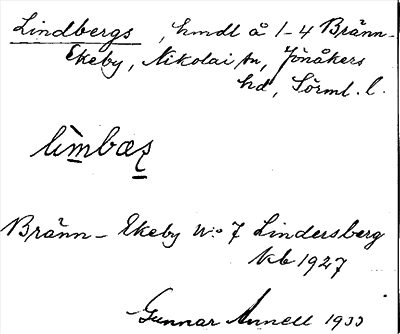 Lindbergs, hmdl å 1-4 Bränn-
Ekeby, Nikolai sn, Jönåkers
hd, Sörml. l.
lìmbæş
Bränn- Ekeby n:o 7 Lindersberg
kb 1927
Gunnar Annell 1933